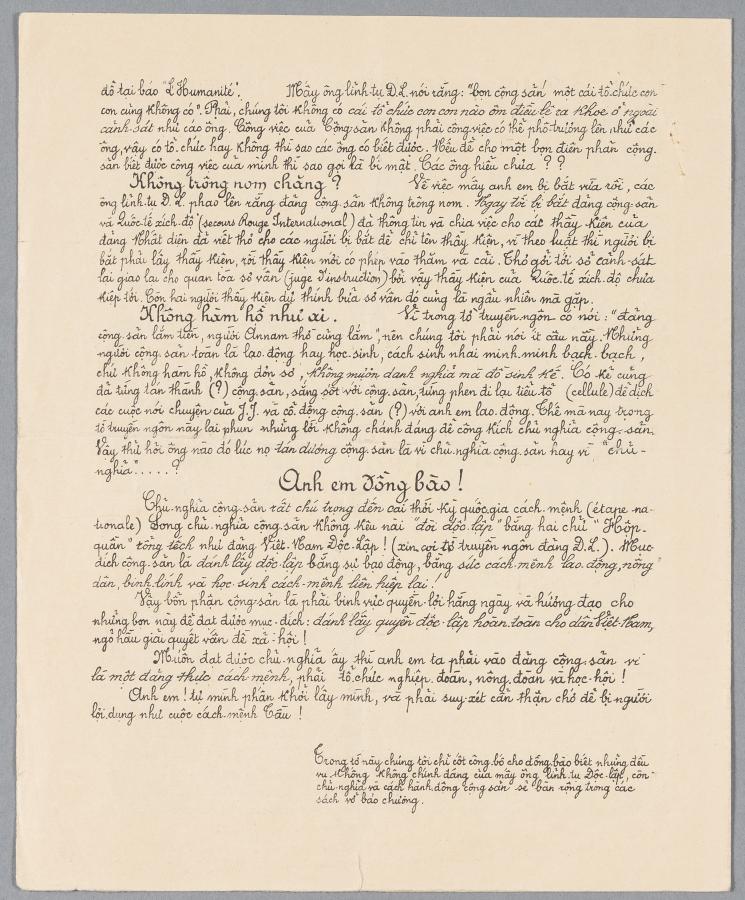 đồ tại báo "L'Humanité". Mấy ông lính-tụ Đ.L. nói rằng: "bọn cộng-sản một cái tổ-chức con-
con cũng không có". Phải, chúng tôi không có cái tổ chức con con nào ôm điều lệ ra khoe ở ngoài
cảnh-sát như các ông. Công việc của Cộng-sản không phải công việc có thể phô trương lên như các
ông, vậy có tổ-chức hay không thì sao các ông có biết được. Nếu để cho một bọn điên phản cộng-
sản biết được công việc của mình thì sao gọi là bí mật. Các ông hiểu chưa ? ?
Không trông nom chăng ? Về việc mấy anh em bị bắt vừa rồi, các
ông lính-tụ Đ.L. phao lên rằng đảng cộng-sản không trông nom. Ngay tối bị bắt đảng cộng-sản
và Quốc-tế xích-độ (secours Rouge International) đã thông tin và chia việc cho các thầy kiện của
đảng. Nhất diện đã viết thơ cho các người bị bắt để chỉ tên thầy kiện, vì theo luật thì người bị
bắt phải lấy thầy kiện, rồi thầy kiện mới có phép vào thăm và cãi. Thơ gởi tới sở cảnh-sát
lại giao lại cho quan tòa sơ vấn (juge d'instruction) bởi vậy thầy kiện của Quốc-tế xích-độ chưa
kiệp tới. Còn hai người thầy kiện dự thính bữa sơ vấn đó cũng là ngẫu nhiên mà gặp.
Không hàm hồ như ai. Vì trong tờ truyền-ngôn có nói: "đảng
cộng-sản lắm tiền, người Annam thơ cũng lắm", nên chúng tôi phải nói ít câu nầy. Những
người cộng-sản toàn là lao-động hay học-sinh, cách sinh nhai minh-minh bạch-bạch,
chứ không hàm hồ, không đơn sơ, không mượn danh nghĩa mà đồ sinh kế. Có kẻ cũng
đã từng tán thành (?) cộng-sản, sắng sốt với cộng-sản, từng phen đi lại tiểu tổ (cellule) để dịch
các cuộc nói chuyện của J.J. và cổ-động cộng-sản (?) với anh em lao-động. Thế mà nay trong
tờ truyền ngôn nầy lại phun những lời không chánh đáng để công kích chủ nghĩa cộng-sản.
Vậy thử hỏi ông nào đó lúc nọ tán dương cộng-sản là vì chủ-nghĩa cộng-sản hay vì "chủ-
nghĩa".....?
Anh em đồng bào !
Chủ-nghĩa cộng-sản rất chú trọng đến cái thời-kỳ quốc-gia cách-mệnh (étape na-
tionale) Song chủ-nghĩa cộng-sản không kêu nài "đòi độc-lập" bằng hai chữ "Hộp-
quần" rỗng tếch như đảng Việt-Nam Độc-Lập ! (xin coi tờ truyền ngôn đảng Đ.L.). Mục-
đích cộng-sản là đánh lấy độc-lập bằng sự bạo động, bằng sức cách-mệnh lao-động, nông-
dân, binh-lính và học-sinh cách-mệnh liên hiệp lại !
Vậy bổn phận cộng-sản là phải binh vực quyền-lợi hằng ngày và hướng đạo cho
những bọn nầy để đạt được mục-đích: đánh lấy quyền độc-lập hoàn-toàn cho dân Việt-Nam,
ngõ hầu giải quyết vấn đề xã-hội !
Muốn đạt được chủ-nghĩa ấy thì anh em ta phải vào đảng cộng-sản vì
là một đảng thực cách mệnh, phải tổ-chức nghiệp-đoàn, nông-đoàn và học-hội !
Anh em ! tự mình phấn khởi lấy mình, và phải suy-xét cẩn thận chớ để bị người
lợi-dụng như cuộc cách-mệnh Tàu !
Trong tờ nầy chúng tôi chỉ cốt công-bố cho đồng-bào biết những điều
vu không không chính đáng của mấy ông lính-tụ Độc-lập, còn
chủ-nghĩa và cách hành-động cộng-sản sẽ bàn rộng trong các
sách vở báo chương.